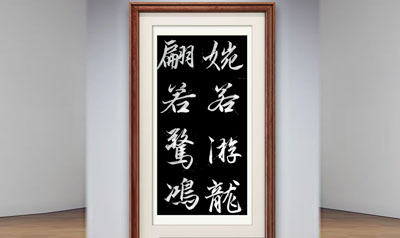 婉若游龍
翩若驚鴻